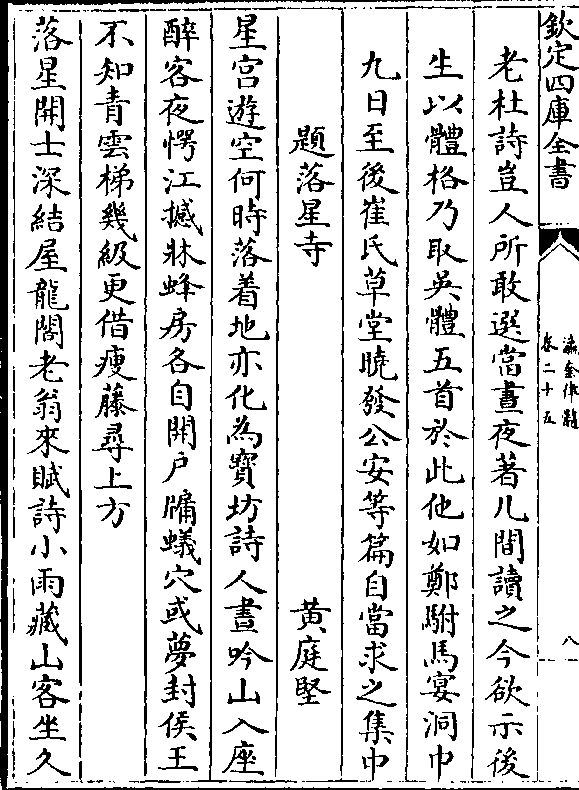 欽定四庫全書
瀛奎律髓
卷二十五
八
老杜詩豈人所敢選當晝夜著几間讀之今欲示後
生以體格乃取吳體五首於此他如鄭駙馬宴洞中
九日至後崔氏草堂曉發公安等篇自當求之集中
題落星寺 黄庭堅
星宫遊空何時落着地亦化為寳坊詩人晝吟山入座
醉客夜愕江撼牀蜂房各自開户牖蟻穴或夢封侯王
不知青雲梯幾級更借瘦藤尋上方
落星開士深結屋龍閣老翁來賦詩小雨藏山客坐久